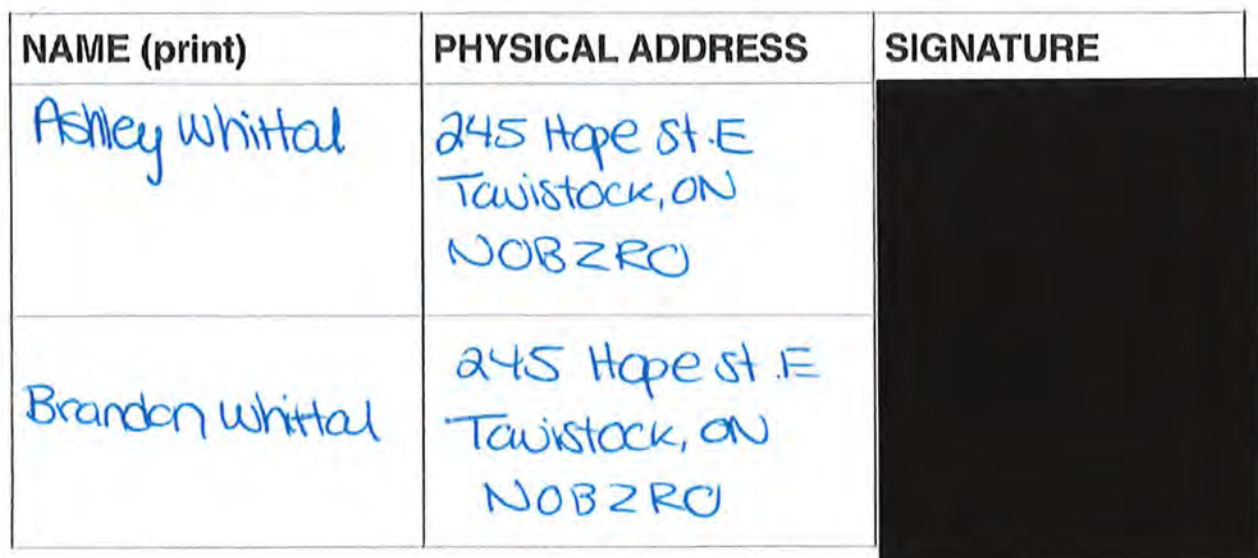 NAME (print) PHYSICAL ADDRESS SIGNATURE
Ashley Whittal
245 Hope St. E
Tavistock, ON
N0B2R0
Brandon Whittal
245 Hope St. E
Tavistock, ON
N0B2R0